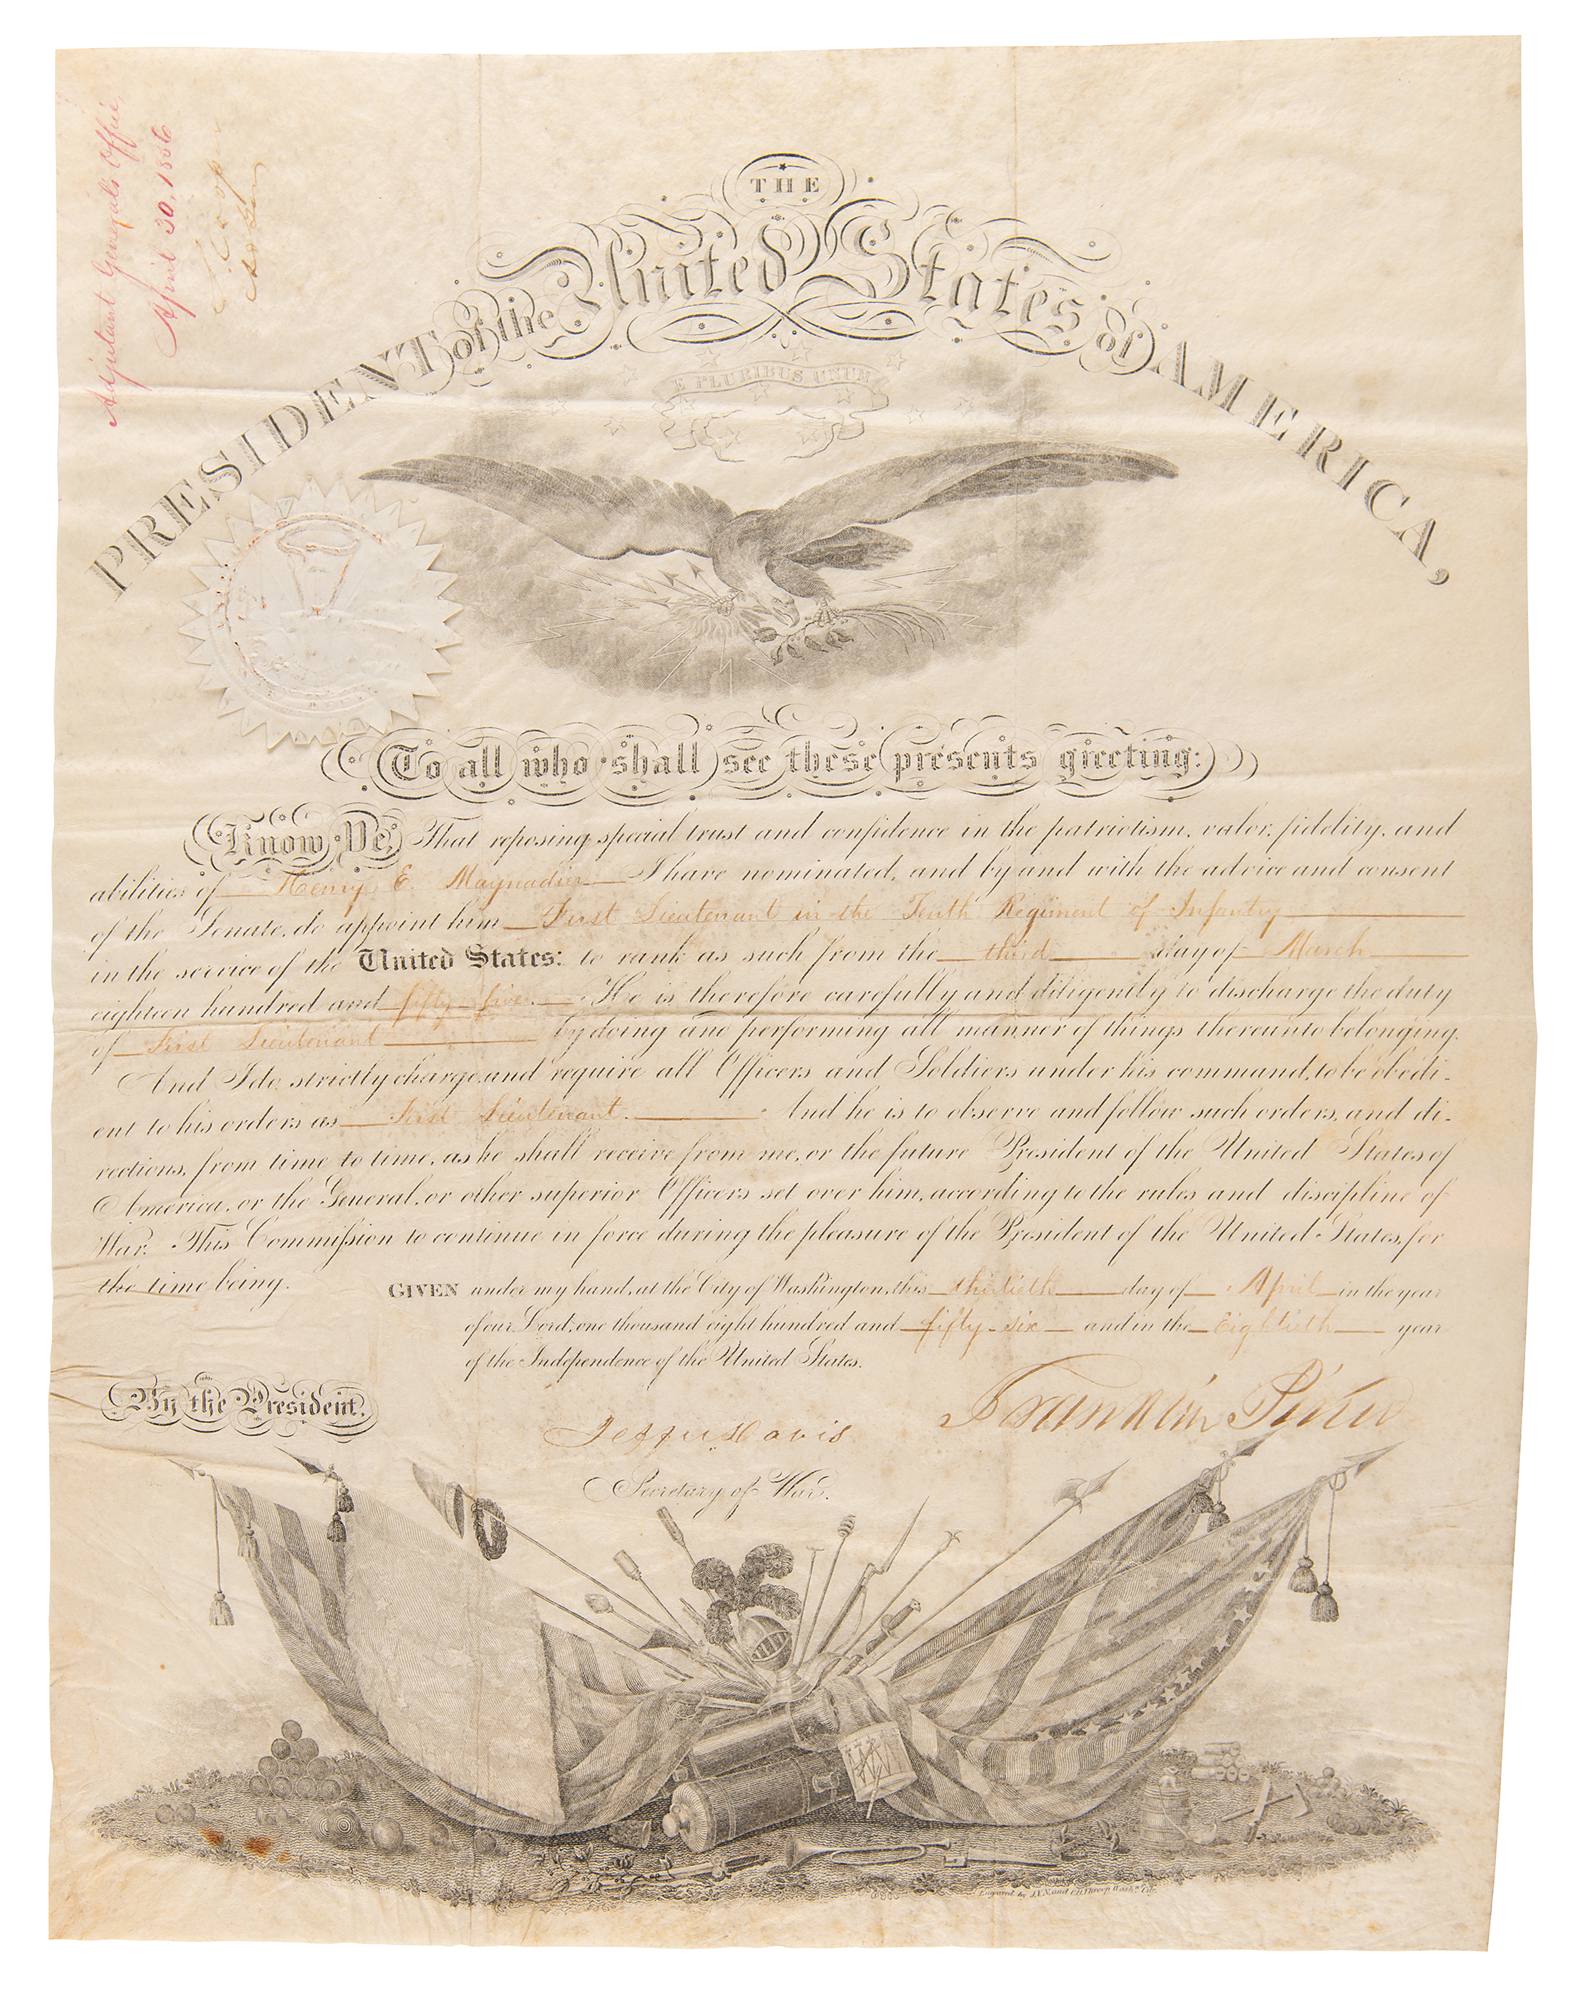 Adjutant General's Office,
April 30, 1856
THE
PRESIDENT of the United States of AMERICA,
E PLURIBUS UNUM
To all who shall see these presents greeting:
Know Ye, That reposing special trust and confidence in the patriotism, valor, fidelity, and
abilities of Henry E. Maynadier I have nominated, and by and with the advice and consent
of the Senate, do appoint him First Lieutenant in the Tenth Regiment of Infantry
in the service of the United States: to rank as such from the third day of March
eighteen hundred and fifty five. He is therefore carefully and diligently to discharge the duty
of First Lieutenant by doing and performing all manner of things thereunto belonging.
And I do strictly charge and require all Officers and Soldiers under his command, to be obedi-
ent to his orders as First Lieutenant. And he is to observe and follow such orders, and di-
rections, from time to time, as he shall receive from me, or the future President of the United States of
America, or the General, or other superior Officers set over him, according to the rules and discipline of
War. This Commission to continue in force during the pleasure of the President of the United States, for
the time being.
GIVEN under my hand, at the City of Washington, this thirtieth day of April in the year
of our Lord, one thousand eight hundred and fifty-six and in the Eightieth year
of the Independence of the United States.
By the President.
Franklin Pierce
Jeffn Davis
Secretary of War.
Engraved by J.V.N. and O.H. Throop Wash.n City